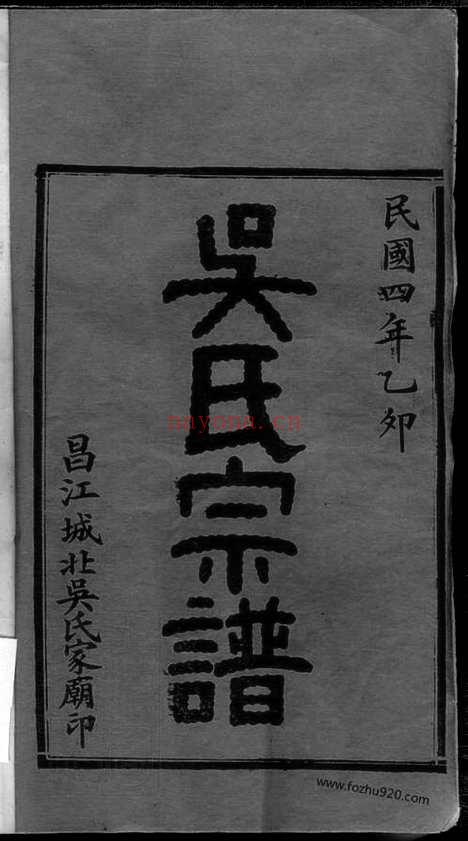 民國四年乙夘
吳氏宗譜
昌江城北吳氏家廟印
nayona.cn
www.fozhu920.com